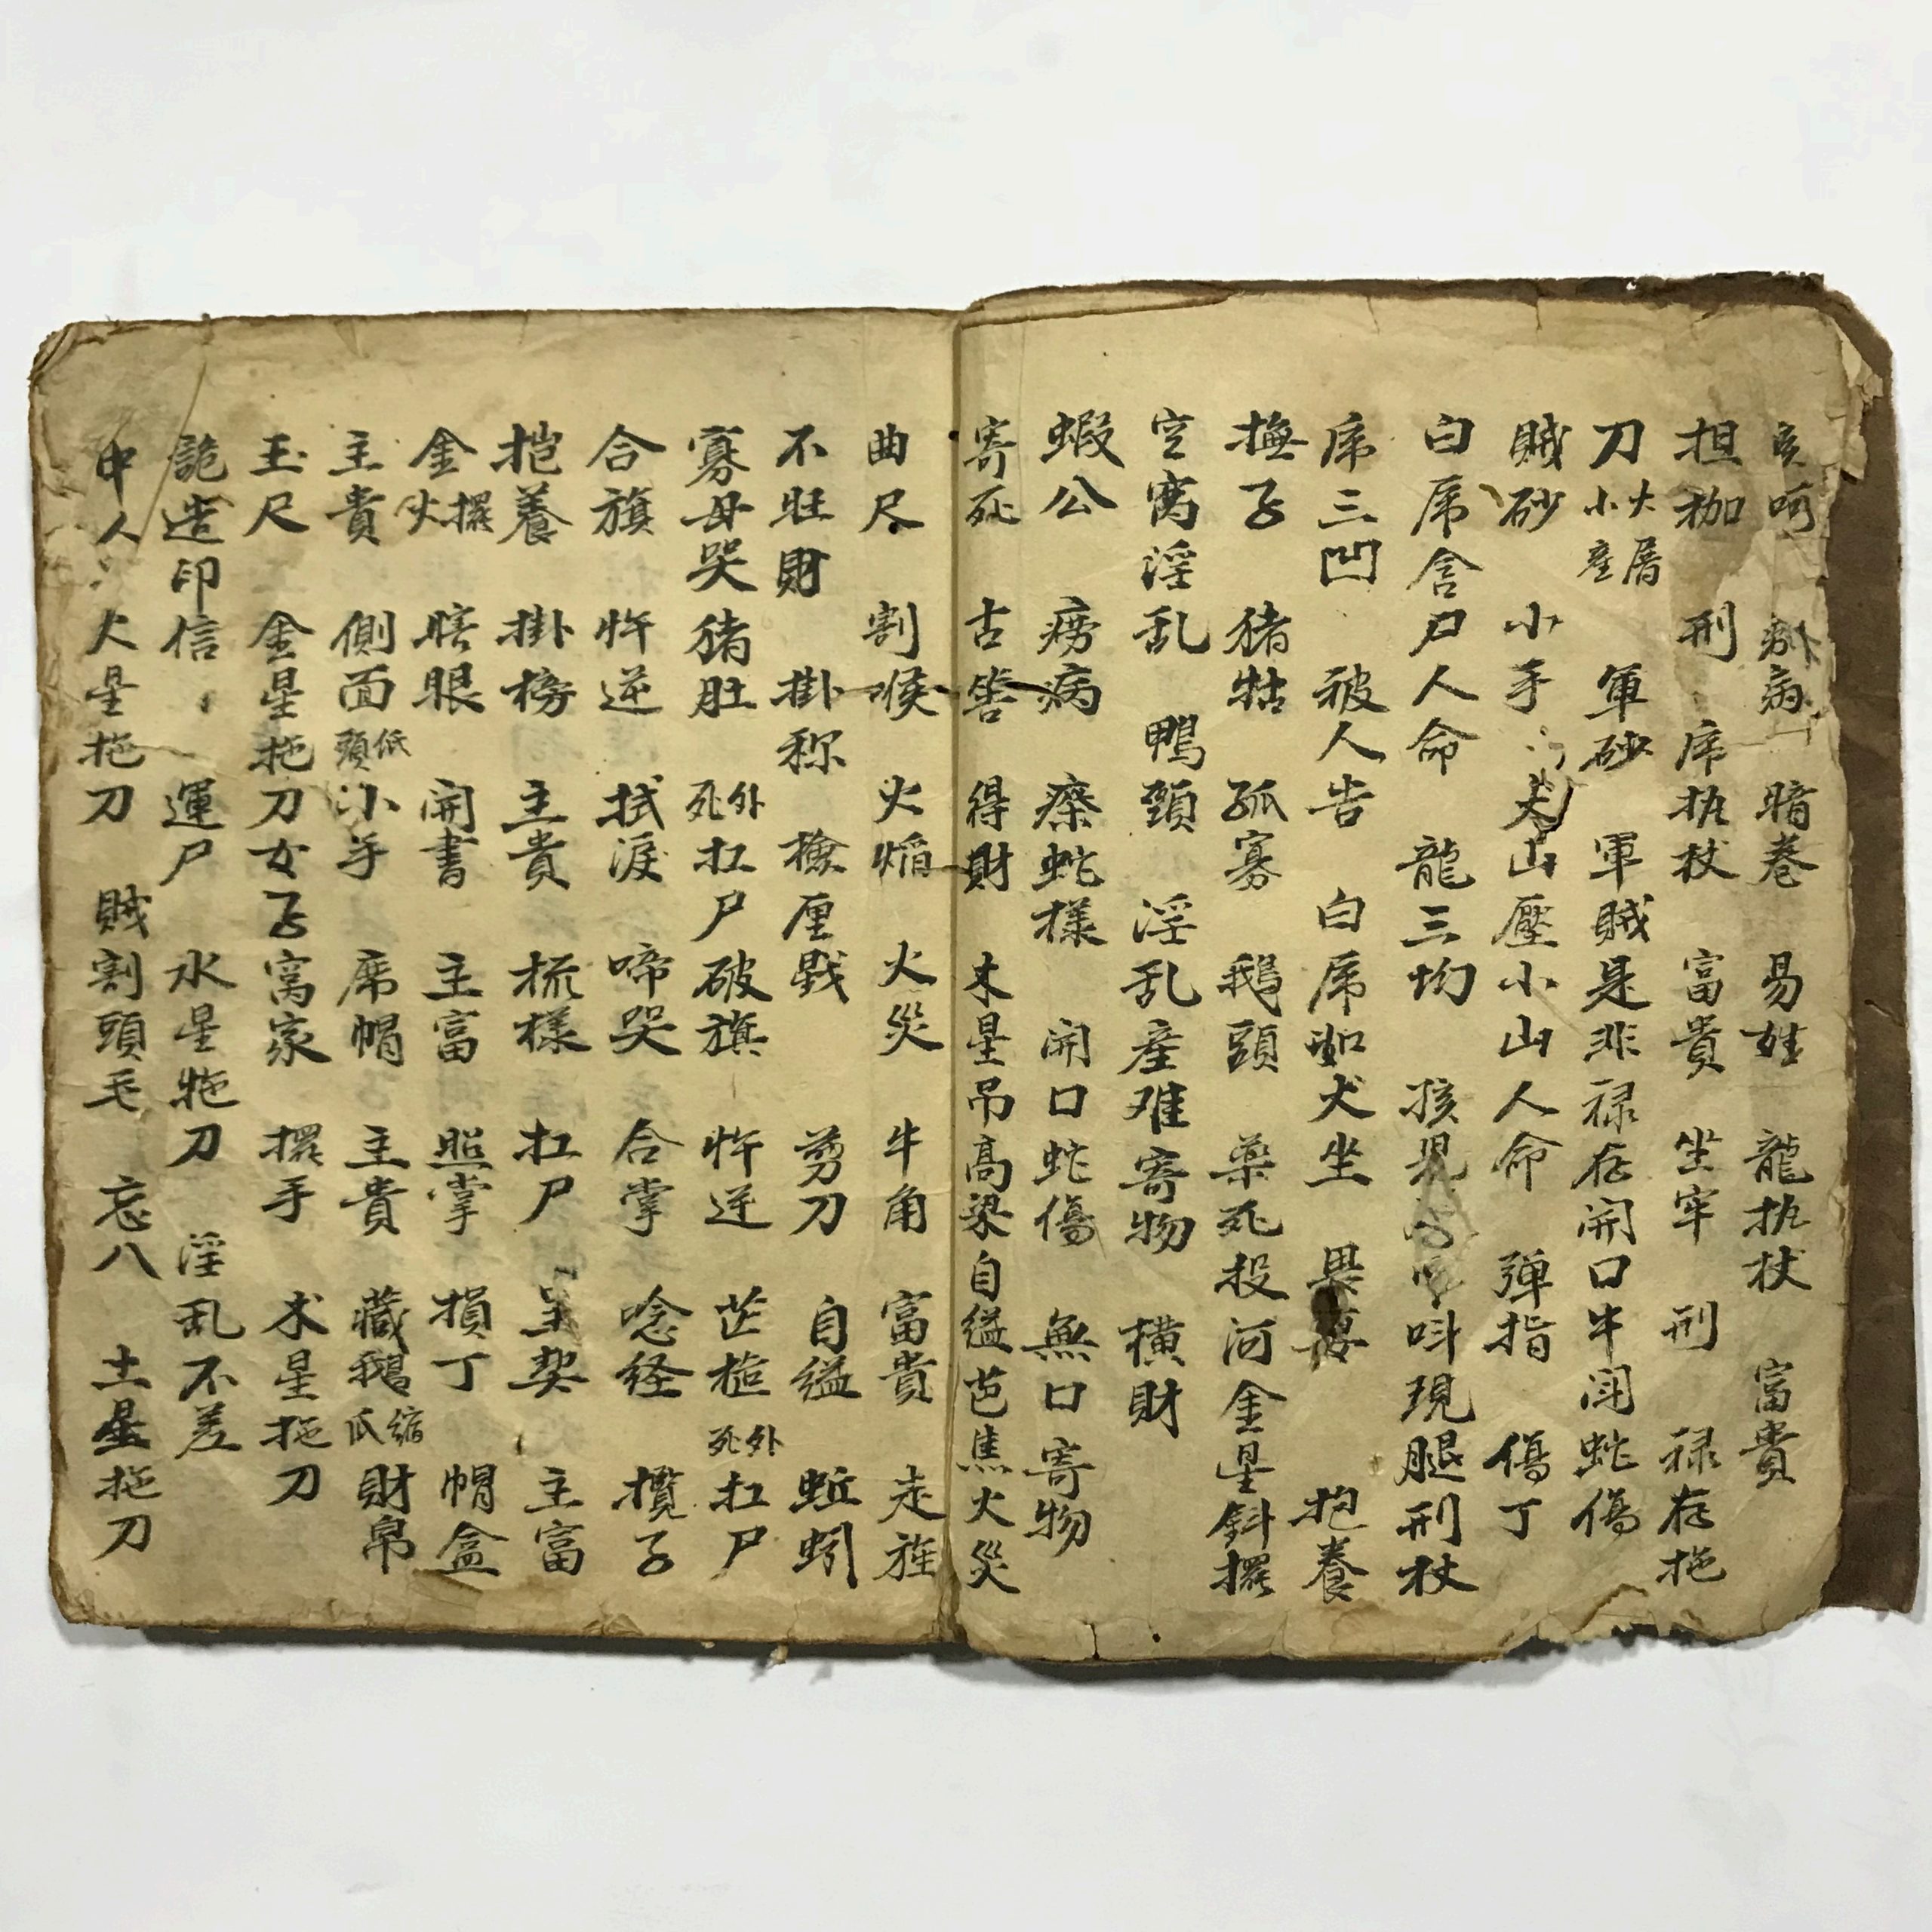 暗巷 易姓 龍执杖 富貴
担枷 刑 虎执杖 富貴 坐牢 刑 禄存拖
刀大屠小産 軍砂 軍賊是非禄存開口牛閗蛇傷
賊砂 小手 大山壓小山人命 弹指 傷丁
白虎含尸人命 龍三坳 孩児 呌現腿刑杖
虎三凹 被人告 白虎如犬坐 抱養
撫子 猪牯 孤寡 鵝頭 藥死投河金星斜擺
空窩淫乱 鴨頸 淫乱産难寄物 横財
蝦公 痨病 瘵蛇樣 開口蛇傷 無口寄物
寄死 古筶 得財 木星吊高梁自縊芭焦火災
曲尺 割喉 火焰 火災 牛角 富貴 走旌
不旺財 掛称 檢厘戥 剪刀 自縊 蚯蚓
寡母哭 猪肚 外死扛尸破旗 忤逆 芒槌 外死扛尸
合旗 忤逆 拭淚 啼哭 合掌 唸経 攬子
抱養 掛榜 主貴 梳樣 扛尸 主契 主富
金火擺 瞎眼 開書 主富 照掌 損丁 帽盒
主貴 側面低頭小手 席帽 主貴 藏鵝縮爪財帛
玉尺 金星拖刀女子窩家 擺手 木星拖刀
詭造印信 運尸 水星拖刀 淫乱不差
中人 火星拖刀 賊割頭毛 忘八 土星拖刀